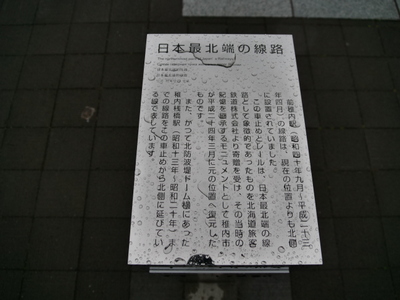 日本最北端の線路
前稚内駅（昭和四十年九月～平成二十三
年四月）の線路は、現在の位置よりも北側
に設置されていました。
この車止めとレールは、日本最北端の線
路として象徴的であったものを北海道旅客
鉄道株式会社より寄贈を受け、その当時の
記憶を継承するモニュメントとして稚内市
が平成二十四年三月に元の位置へ復元した
ものです。
また、かつて北防波堤ドーム横にあった
稚内桟橋駅（昭和十三年～昭和二十年）ま
での線路をこの車止めから北側に延びてい
る線で表しています。